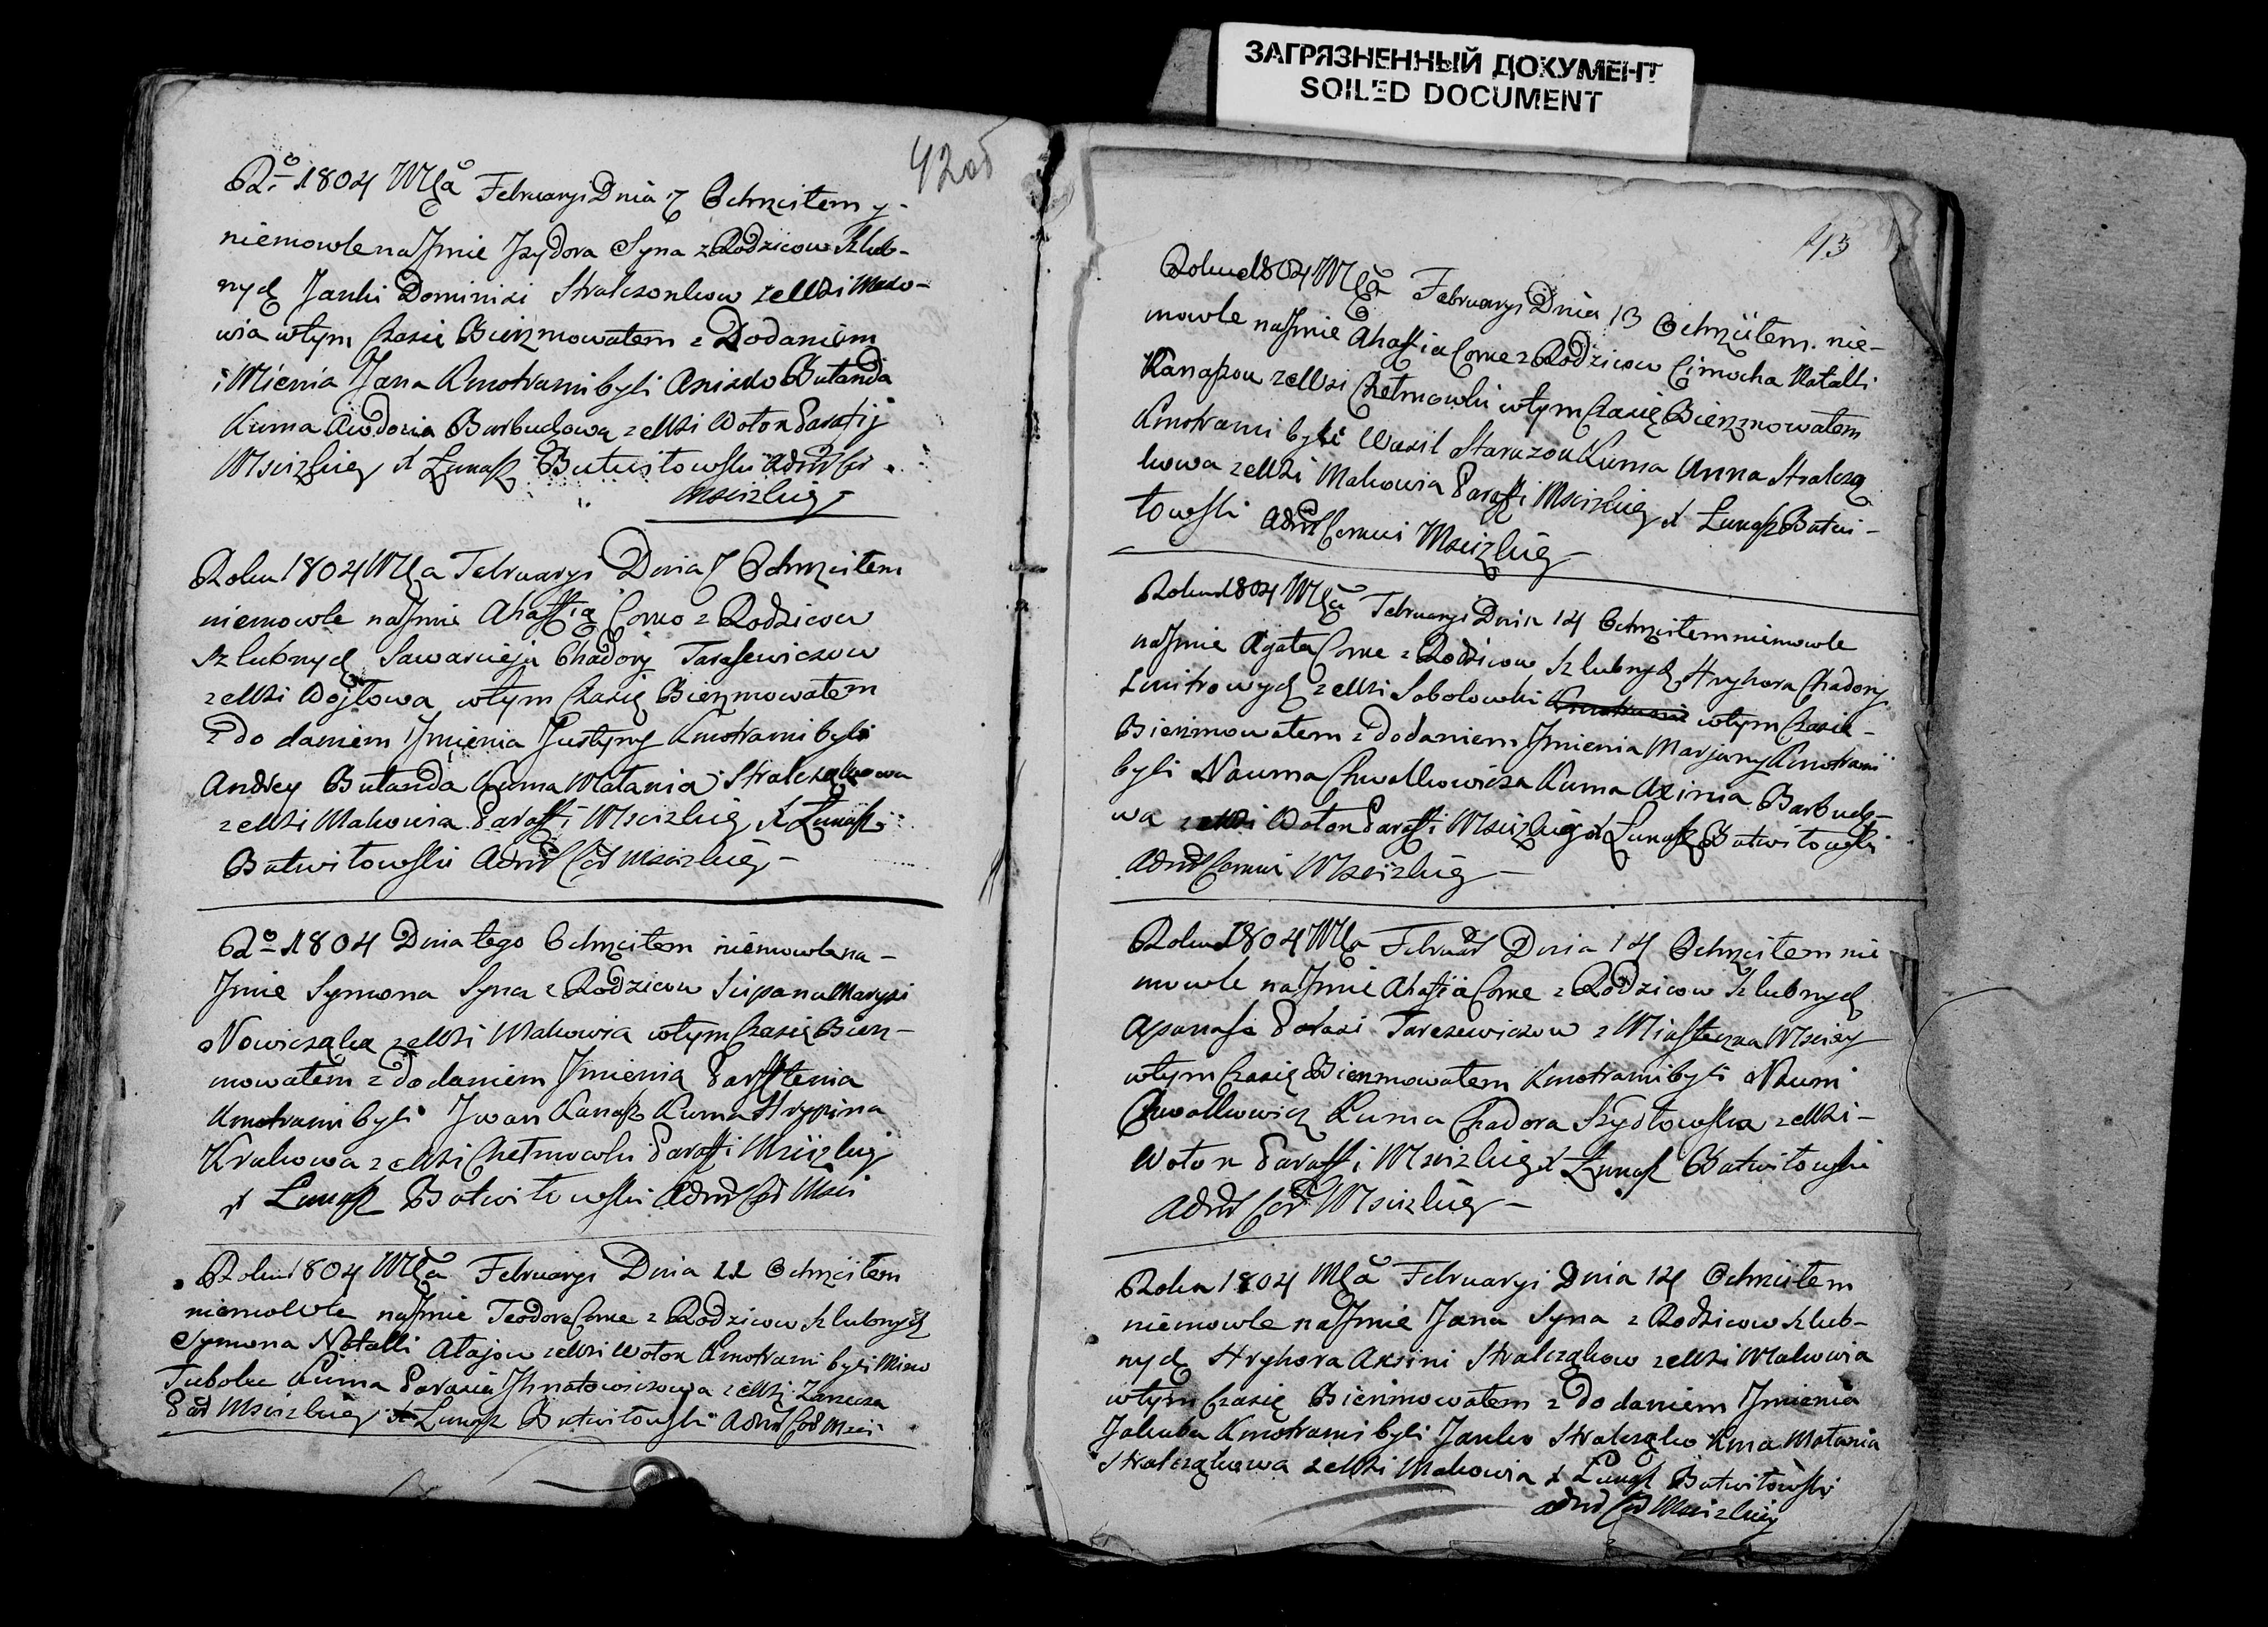 ЗАГРЯЗНЕННЫЙ ДОКУМЕНТ
SOILED DOCUMENT
42об
Ro 1804 Mca Februaryi Dnia 7 Ochrzciłem
niemowle na Jmie Jzydora Syna z Rodzicow Szlub-
nych Janki Dominiki Stralczonkow z Wsi Mako-
wia w tym Czasie Bierzmowałem z Dodaniem
iMienia Jana Kmotrami byli Butanda
Kuma Awdocia Barbuchowa z Wsi Woton Parafij
Mscizkiey X Łukasz Batwitowski Admr Cer
Mscizkiey
Roku 1804 Mca Februaryi Dnia 7 Ochrzciłem
niemowle na Jmie Ahaffią Corko z Rodzicow
Szlubnych Sawarcieja Chadory Tarasewiczow
z Wsi Wojtowa w tym Czasie Bierzmowałem
z do daniem Jmienia Justyny Kmotrami byli
Andrey Butanda Kuma Matania Stralcząkowa
z Wsi Makowia Paraffi Mscizkiey X Łukasz
Batwitowski Admr Cer Mscizkiey
Ro 1804 Dnia tego Ochrzciłem niemowle na
Jmie Symona Syna z Rodzicow Scipana Marysi
Nowicząka z Wsi Makowia w tym Czasie Bierz-
mowałem z do daniem Jmienia
Kmotrami byli Jwan Kanasz Kuma Hrypina
Krakowa z Wsi Chełmowki Paraffi Mscizkiey
X Łukasz Batwitowski Admr Cer Msci
Roku 1804 Mca Februaryi Dnia 22 Ochrzciłem
niemowle na Jmie Teodora Corke z Rodzicow Szlubnych
Symona Natalli Atajow z Wsi Woton Kmotrami byli
Tubolec Kuma Parasia Jhnatowiczowa z Wsi
Par Mscizkiey X Łukasz Batwitowski Admr Cer Msci
43
Roku 1804 Mca Februaryi Dnia 13 Ochrzciłem nie-
mowle na Jmie Ahaffia Corke z Rodzicow Cimocha Natalli
Kanapow z Wsi Chełmowki w tym Czasie Bierzmowałem
Kmotrami byli Wasil Kuma Anna Stralczą
kowa z Wsi Makowia Paraffi Mscizkiey X Łukasz Batwi-
towski Admr Cerkwi Mscizkiey
Roku 1804 Mca Februaryi Dnia 14 Ochrzciłem niemowle
na Jmie Agata Corke z Rodzicow Szlubnych Hryhora Chadory
z Wsi Sobolowki w tym Czasie
Bierzmowałem z dodaniem Jmienia Marjany Kmotrami
byli Nauma Chwalkowicza Kuma Axinia Barbucho-
wa z Wsi Woton Paraffi Mscizkiey X Łukasz Batwitowski
Admr Cerkwi Mscizkiey
Roku 1804 Mca Februar Dnia 14 Ochrzciłem nie
mowle na Jmie Ahafia Corke z Rodzicow Szlubnych
Apanasa Parasi Tarasewiczow z Miasteczka Mscizy
w tym Czasie Bierzmowałem Kmotrami byli Naum
Chwalkowicz Kuma Chadora Szydłowska z Wsi
Woton Paraffi Mscizkiey X Łukasz Batwitowski
Admr Cer Mscizkiey
Roku 1804 Mca Februaryi Dnia 14 Ochrzciłem
niemowle na Jmie Jana Syna z Rodzicow Szlub-
nych Hryhora Axini Stralcząkow z Wsi Makowia
w tym Czasie Bierzmowałem z do daniem Jmienia
Jakuba Kmotrami byli Janko Stralcząko Kma Matania
Stralcząkowa z Wsi Makowia X Łukasz Batwitowski
Admr Cer Mscizkiey